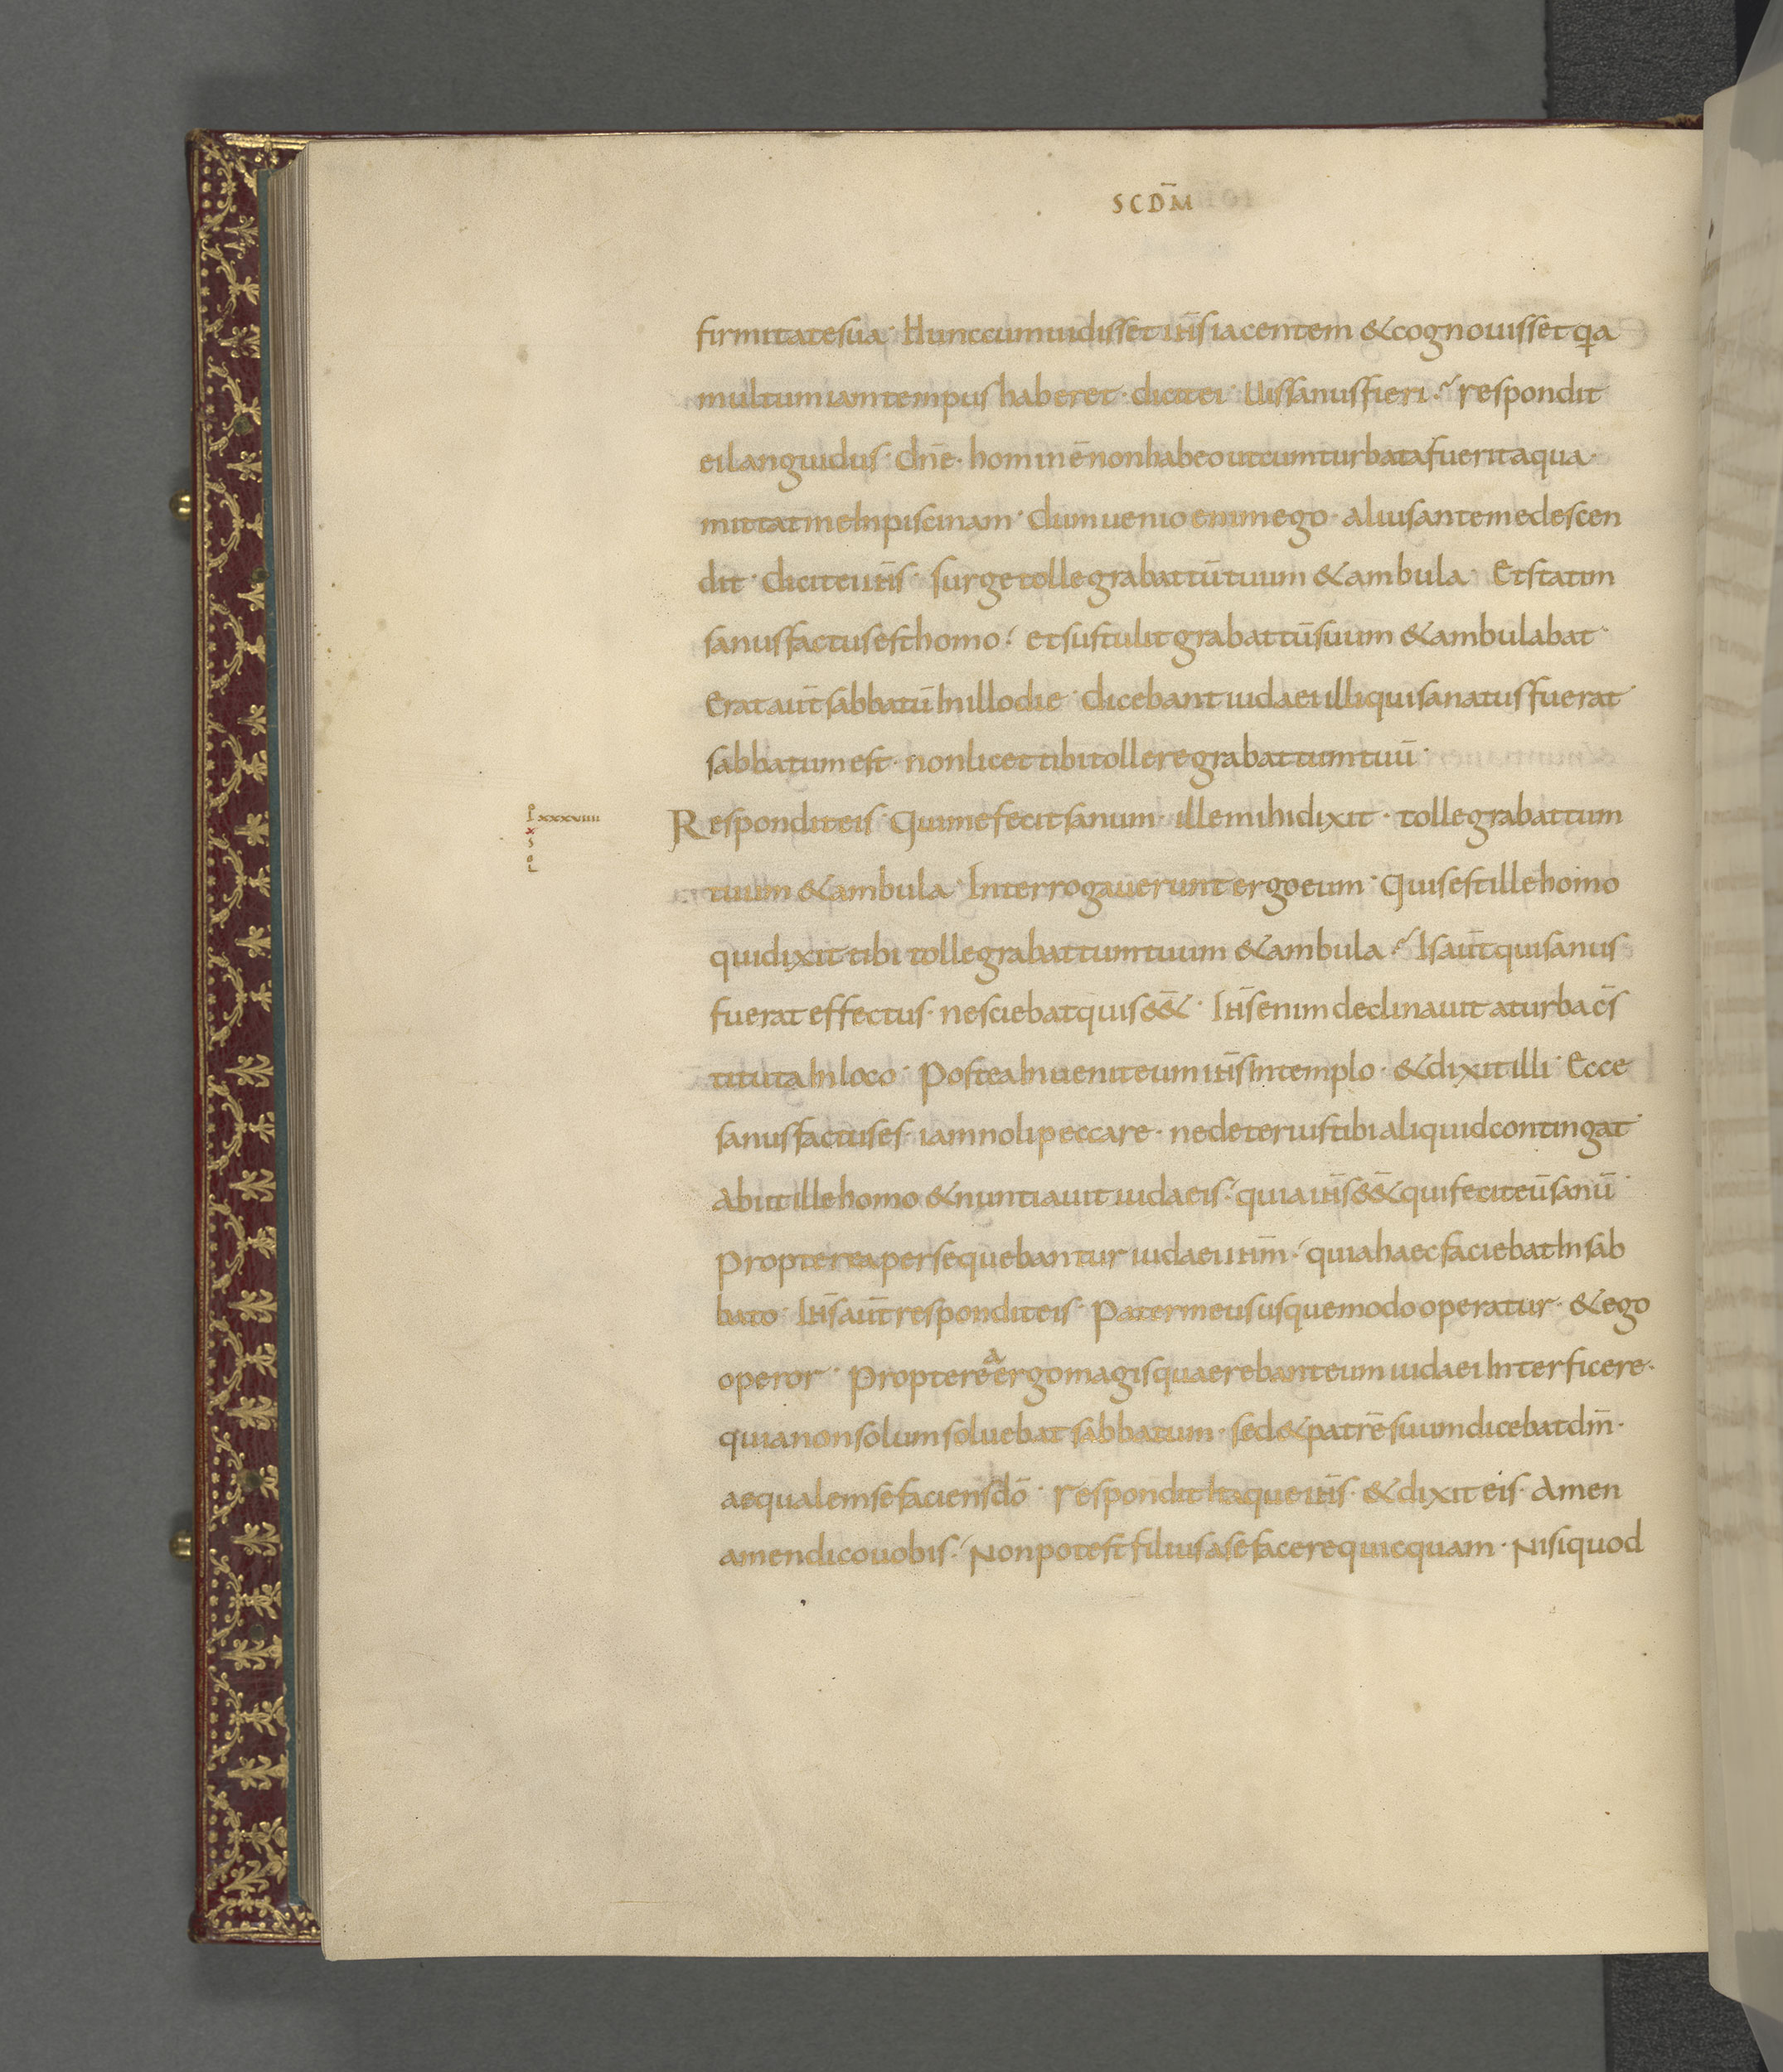 SCDM̄
firmitate sua · Hunc cum uidisset ih̄s iacentem & cognouisset qa
multum iam tempus haberet · dicit ei · Uis sanus fieri · respondit
ei languidus · dn̄e · hominē non habeo ut cum turbata fuerit aqua ·
mittat me In piscinam · dum uenio enim ego · alius ante me descen
dit · dicit ei ih̄s · surge tolle grabattū tuum & ambula · Et statim
sanus factus est homo · et sustulit grabattū suum & ambulabat ·
Erat aūt sabbatū In illo die · dicebant iudaei illi qui sanatus fuerat ·
sabbatum est · non licet tibi tollere grabattum tuū ·
Respondit eis · Qui me fecit sanum · ille mihi dixit · tolle grabattum
tuum & ambula · Interrogauerunt ergo eum · Quis est ille homo
qui dixit tibi tolle grabattum tuum & ambula · Is aūt qui sanus
fuerat effectus · nesciebat quis ēē& · Ih̄s enim declinauit a turba cs̄
tituta In loco · Postea Inuenit eum ih̄s In templo · & dixit illi · Ecce
sanus factus es · iam noli peccare · ne deterius tibi aliquid contingat ·
Abiit ille homo & nuntiauit iudaeis · quia ih̄s ēē& qui fecit eū sanū ·
Propterea persequebantur iudaei ih̄m · quia haec faciebat In sab
bato · Ih̄s aūt respondit eis · Pater meus usque modo operatur · & ego
operor · Propterea ergo magis quaerebant eum iudaei Interficere ·
quia non solum soluebat sabbatum · sed & patrē suum dicebat dm̄ ·
aequalem se faciens dō · respondit Itaque ih̄s · & dixit eis · Amen
amen dico uobis · Non potest filius a se facere quicquam · Nisi quod